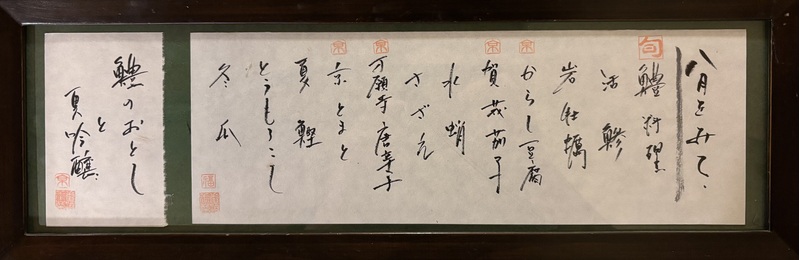 八月をみて、
旬
鱧料理
活鯵
岩牡蠣
京
からし豆腐
京
賀茂茄子
水蛸
さざえ
京
万願寺唐辛子
京
京とまと
夏鰹
とうもろこし
冬瓜
鱧のおとし
と
夏吟醸
京